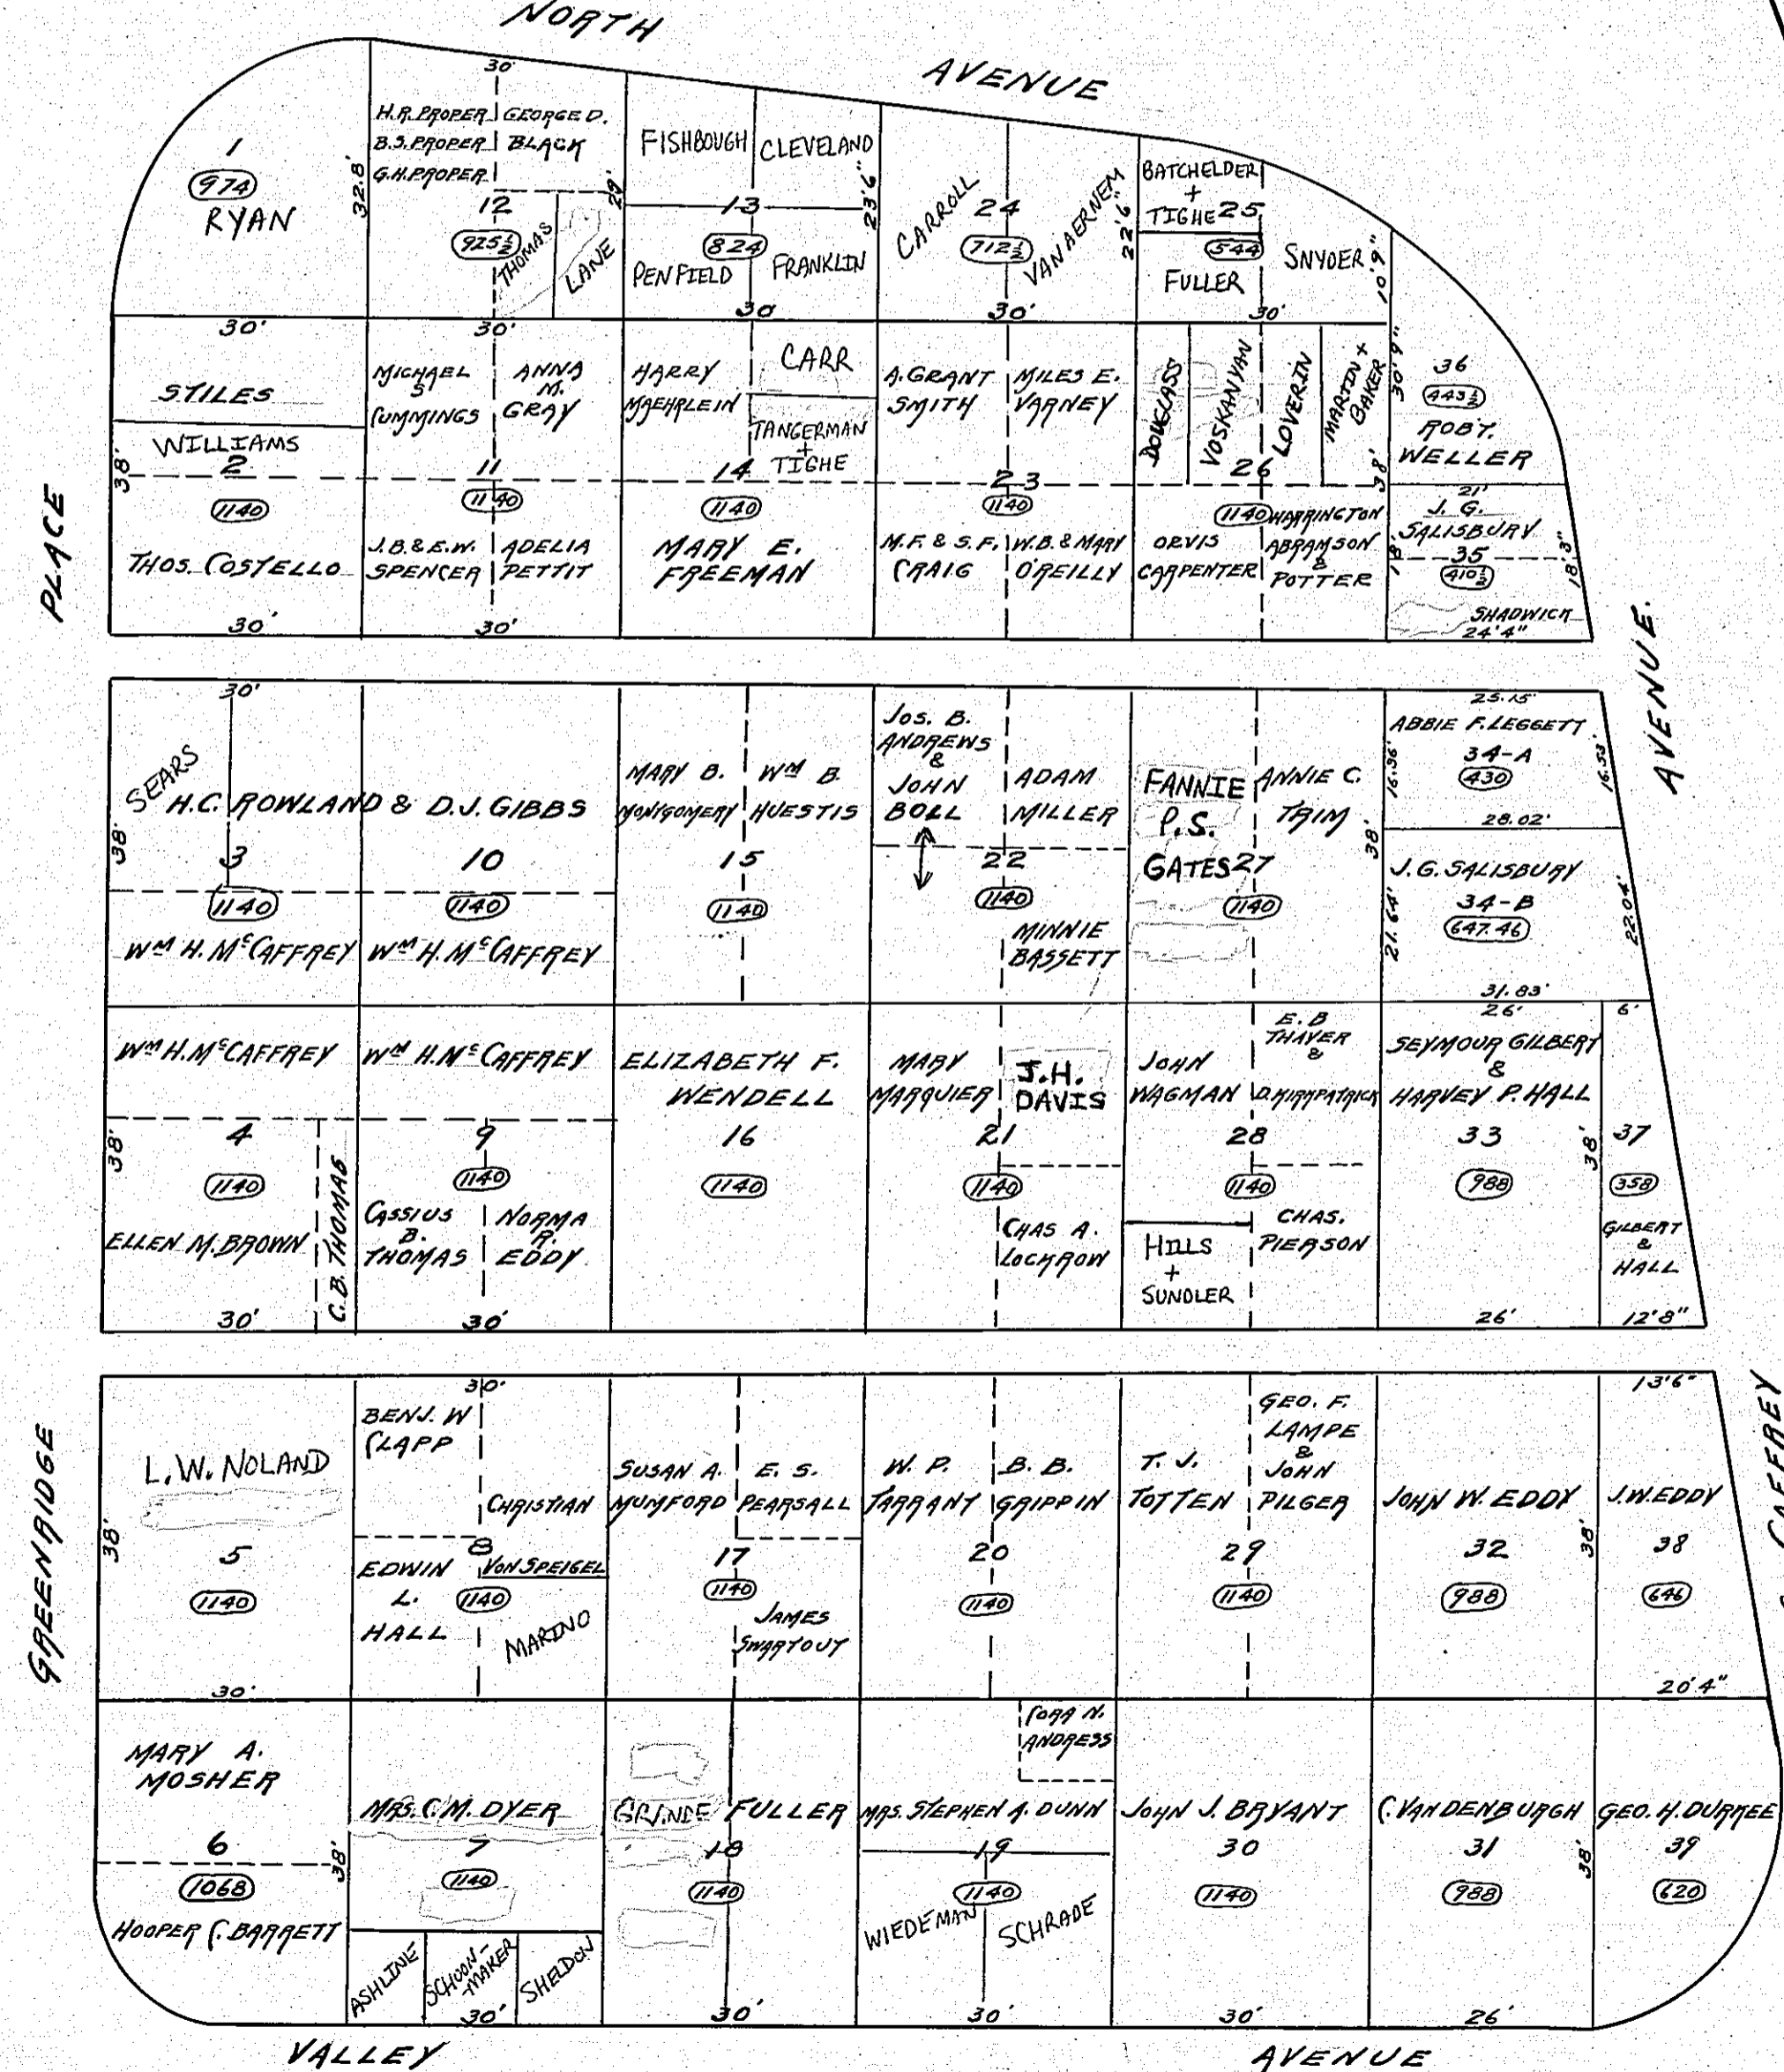 NORTH
AVENUE
PLACE
GREENRIDGE
AVENUE.
CAFFREY
VALLEY
AVENUE
1
974
RYAN
32.8'
30'
30'
H.R. PROPER
B.S. PROPER
G.H. PROPER
GEORGE D.
BLACK
12
925½
THOMAS
LANE
29'
30'
FISHBOUGH
CLEVELAND
13
824
PENFIELD
FRANKLIN
23'6"
30
CARROLL
24
712½
VAN AERNEM
22'6"
30'
BATCHELDER
+
TIGHE
25
544
FULLER
SNYDER
10'9"
30'
STILES
WILLIAMS
2
38'
1140
THOS. COSTELLO
30'
MICHAEL
S
CUMMINGS
ANNA
M.
GRAY
11
1140
J.B. & E.W.
SPENCER
ADELIA
PETTIT
30'
HARRY
MAEHRLEIN
CARR
TANGERMAN
+
TIGHE
14
1140
MARY E.
FREEMAN
A. GRANT
SMITH
MILES E.
VARNEY
23
1140
M.F. & S.F.
CRAIG
W.B. & MARY
O'REILLY
DOUGLASS
VOSKANYAN
LOVERIN
MARTIN +
BAKER
26
38'
1140
ORVIS
CARPENTER
HARRINGTON
ABRAMSON
&
POTTER
30'9"
36
443½
ROBT.
WELLER
21'
J. G.
SALISBURY
35
410½
18'
18'3"
SHADWICK
24'4"
30'
SEARS
H.C. ROWLAND & D.J. GIBBS
38'
3
1140
WM H. MCCAFFREY
10
1140
WM H. MCCAFFREY
MARY B.
MONTGOMERY
WM B.
HUESTIS
15
1140
JOS. B.
ANDREWS
&
JOHN
BOLL
ADAM
MILLER
22
1140
MINNIE
BASSETT
FANNIE
P.S.
GATES
ANNIE C.
TRIM
27
1140
38'
25.15'
ABBIE F. LEGGETT
34-A
430
16.36'
16.53'
28.02'
J.G. SALISBURY
34-B
647.46
21.64'
22.04'
31.83'
WM H. MCCAFFREY
4
38'
1140
ELLEN M. BROWN
C.B. THOMAS
30'
WM H. MCCAFFREY
9
1140
CASSIUS
B.
THOMAS
NORMA
R.
EDDY
30'
ELIZABETH F.
WENDELL
16
1140
MARY
MARQUIER
J.H.
DAVIS
21
1140
CHAS A.
LOCKROW
JOHN
WAGMAN
E.B
THAYER
&
D. KIRKPATRICK
28
1140
HILLS
+
SUNDLER
CHAS.
PIERSON
26'
SEYMOUR GILBERT
&
HARVEY P. HALL
33
988
38'
26'
6'
37
358
GILBERT
&
HALL
12'8"
L.W. NOLAND
38'
5
1140
30'
30'
BENJ. W
CLAPP
CHRISTIAN
VON SPEIGEL
8
EDWIN
L.
HALL
1140
MARINO
SUSAN A.
MUMFORD
E. S.
PEARSALL
17
1140
JAMES
SWARTOUT
W. P.
TARRANT
B. B.
GRIPPIN
20
1140
T. J.
TOTTEN
GEO. F.
LAMPE
&
JOHN
PILGER
29
1140
JOHN W. EDDY
32
988
38'
13'6"
J.W. EDDY
38
646
20'4"
MARY A.
MOSHER
6
1068
HOOPER C. BARRETT
38'
MRS. C.M. DYER
7
1140
ASHLINE
SCHOON-
-MAKER
SHELDON
30'
GRINDE
FULLER
18
1140
30'
CORA N.
ANDRESS
MRS. STEPHEN A. DUNN
19
1140
WIEDEMAN
SCHRADE
30'
JOHN J. BRYANT
30
1140
30'
C. VANDENBURGH
31
988
38'
26'
GEO. H. DURKEE
39
620